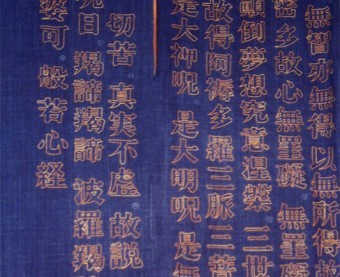 無智亦無得以無所得故
密多故心無罣礙 無罣
顛倒夢想究竟涅槃 三世
故得阿耨多羅三脈三菩
是大神呪 是大明呪 是無
一切苦 真実不虚 故説
呪曰 羯諦羯諦 波羅羯
婆可 般若心経